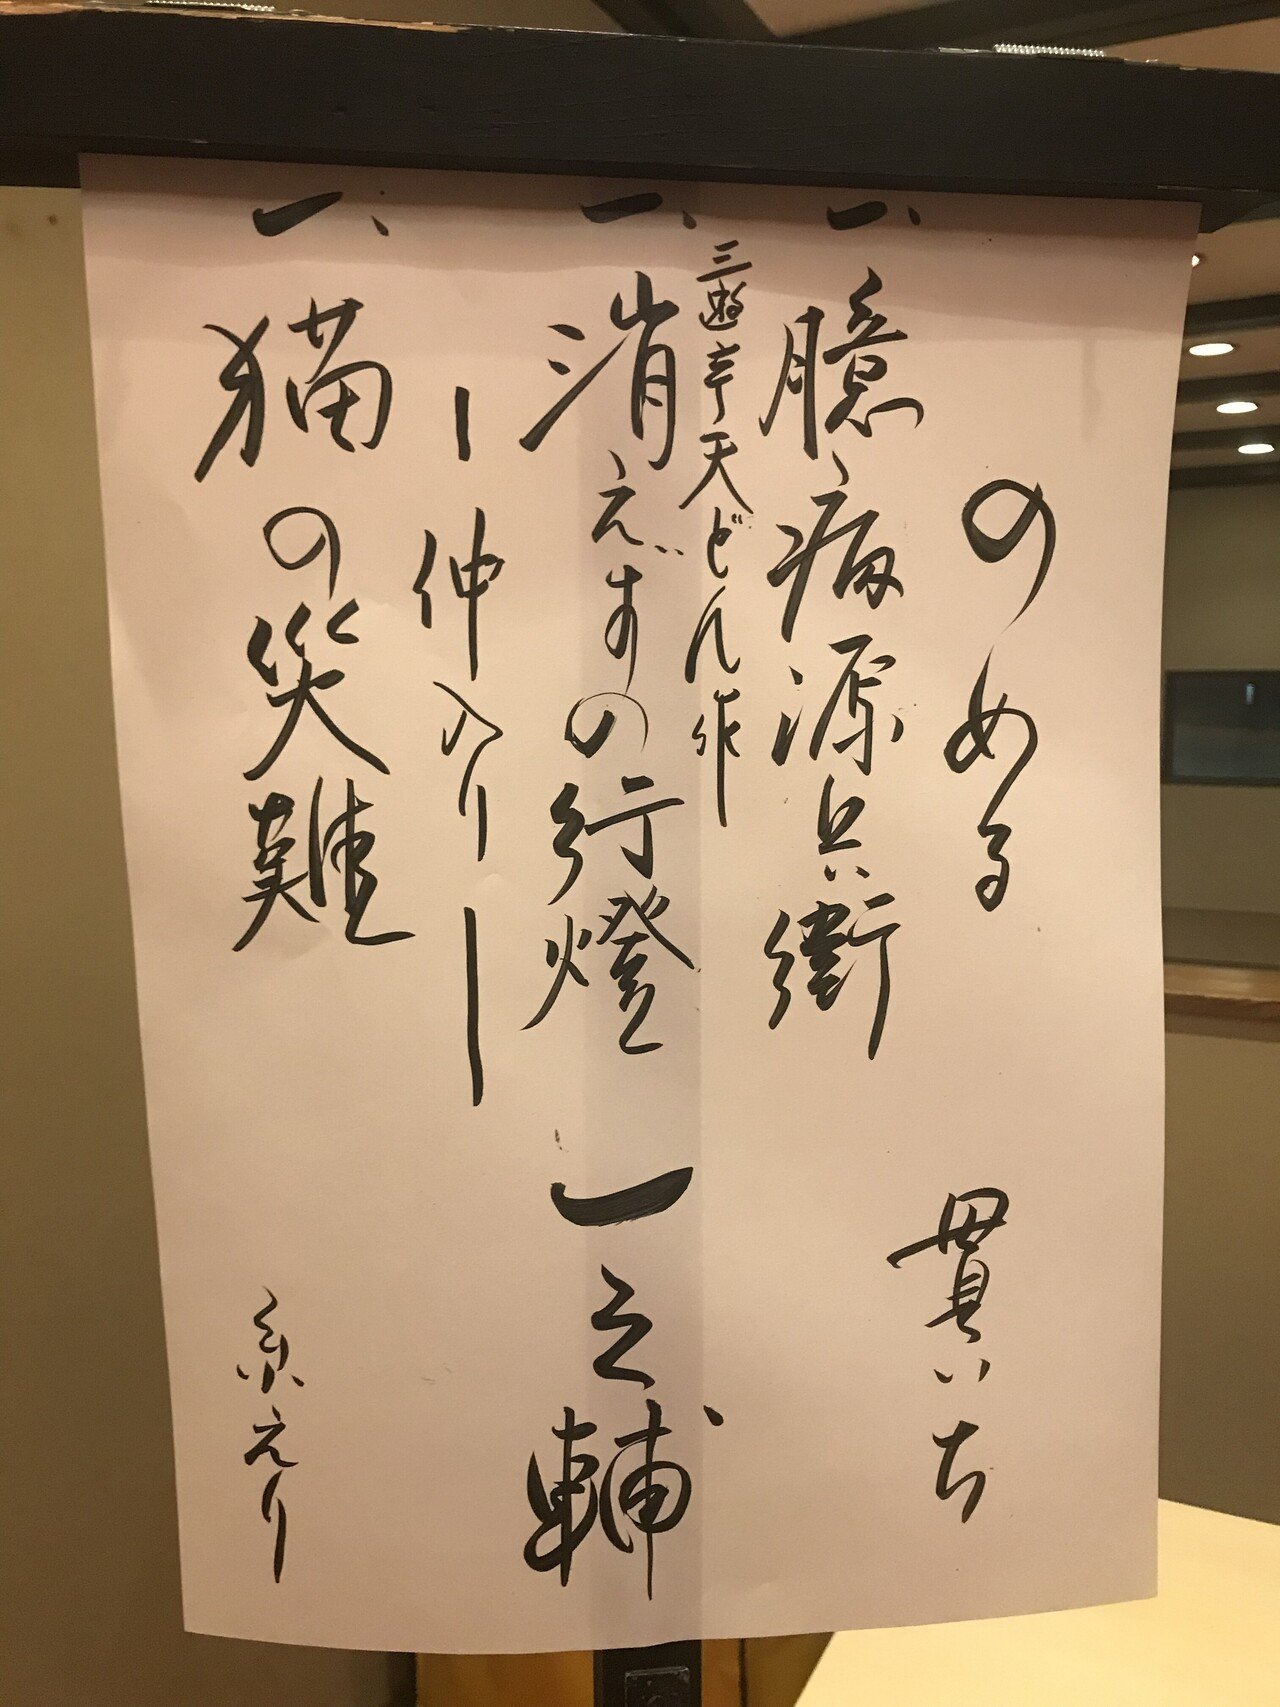 のめる 貫いち
一、臆病源兵衛
三遊亭天どん作
一、消えずの行燈 一之輔
ー仲入りー
一、猫の災難
糸えり